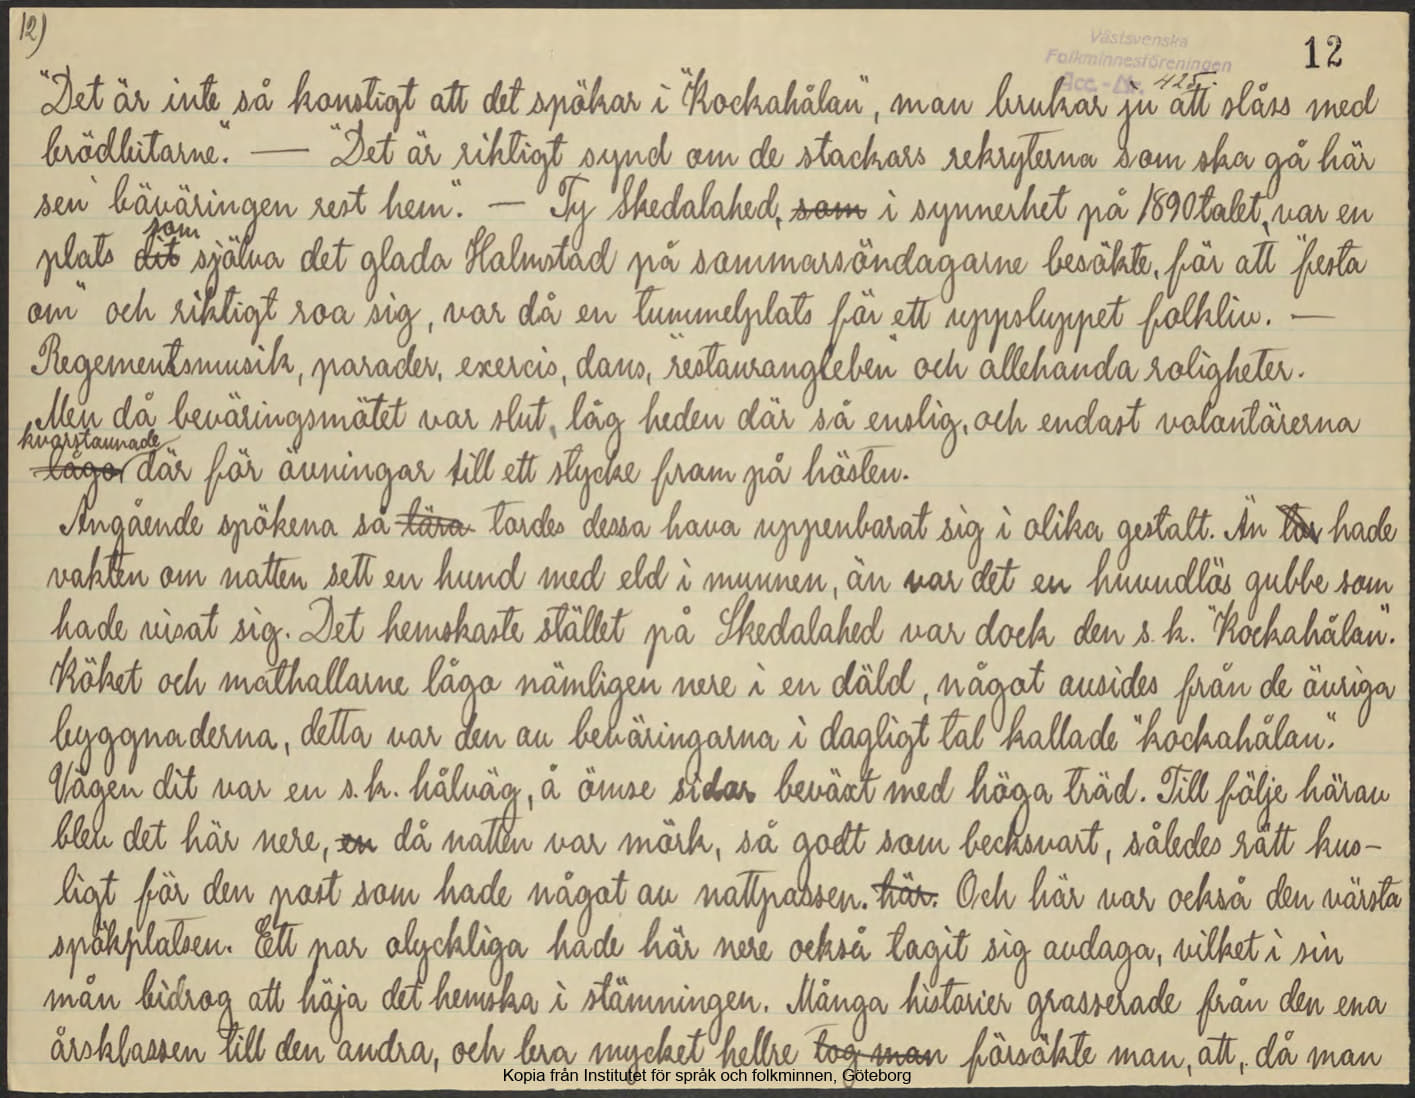 12)
Västsvenska
Folkminnesföreningen
Acc.-Nr. 425.
12
"Det är inte så konstigt att det spökar i "Kockahålan", man brukar ju att slåss med
brödbitarne". — "Det är riktigt synd om de stackars rekryterna som ska gå här
sen bäväringen rest hem". — Ty Skedalahed, som i synnerhet på 1890talet, var en
som
plats dit själva det glada Halmstad på sommarsöndagarne besökte, för att "festa
om" och riktigt roa sig, var då en tummelplats för ett uppsluppet folkliv. —
Regementsmusik, parader, exercis, dans, "restaurangleben" och allehanda roligheter.
Men då beväringsmötet var slut, låg heden där så enslig, och endast volontärerna
kvarstannade
lågo där för övningar till ett stycke fram på hösten.
Angående spökena så lära tordes dessa hava uppenbarat sig i olika gestalt. Än hade
vakten om natten sett en hund med eld i munnen, än var det en huvudlös gubbe som
hade visat sig. Det hemskaste stället på Skedalahed var dock den s.k. "Kockahålan".
Köket och mathallarne lågo nämligen nere i en däld, något avsides från de övriga
byggnaderna, detta var den av beväringarna i dagligt tal kallade "kockahålan".
Vägen dit var en s.k. hålväg, å ömse sidor beväxt med höga träd. Till följe härav
blev det här nere, en då natten var mörk, så godt som becksvart, således rätt kus-
ligt för den post som hade något av nattpassen. här. Och här var också den värsta
spökplatsen. Ett par olyckliga hade här nere också tagit sig avdaga, vilket i sin
mån bidrog att höja det hemska i stämningen. Många historier grasserade från den ena
årsklassen till den andra, och bra mycket hellre tog man försökte man, att, då man
Kopia från Institutet för språk och folkminnen, Göteborg